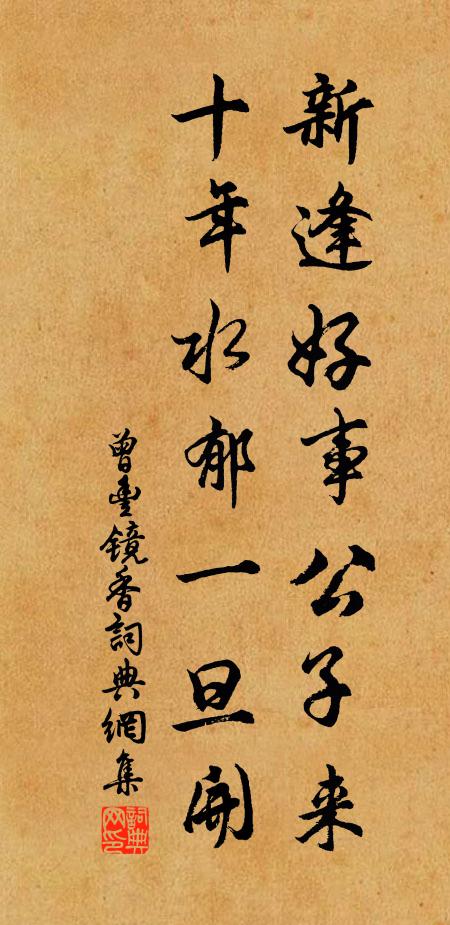 新逢好事公子来
十年水郁一旦開
曾豊镜香詞典網集
詞典网印